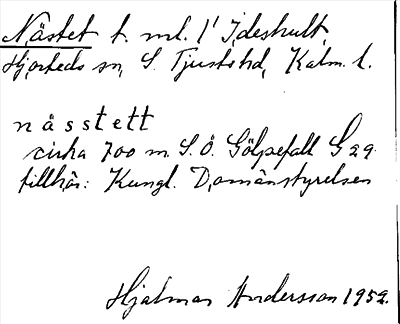 Nästet t. ml. 1' Ideshult,
Hjorteds sn, S. Tjusts hd, Kalm. l.
nåsstett
cirka 700 m. S.Ö. Gölpefall G 29.
tillhör: Kungl. Domänstyrelsen
Hjalmar Andersson 1952.